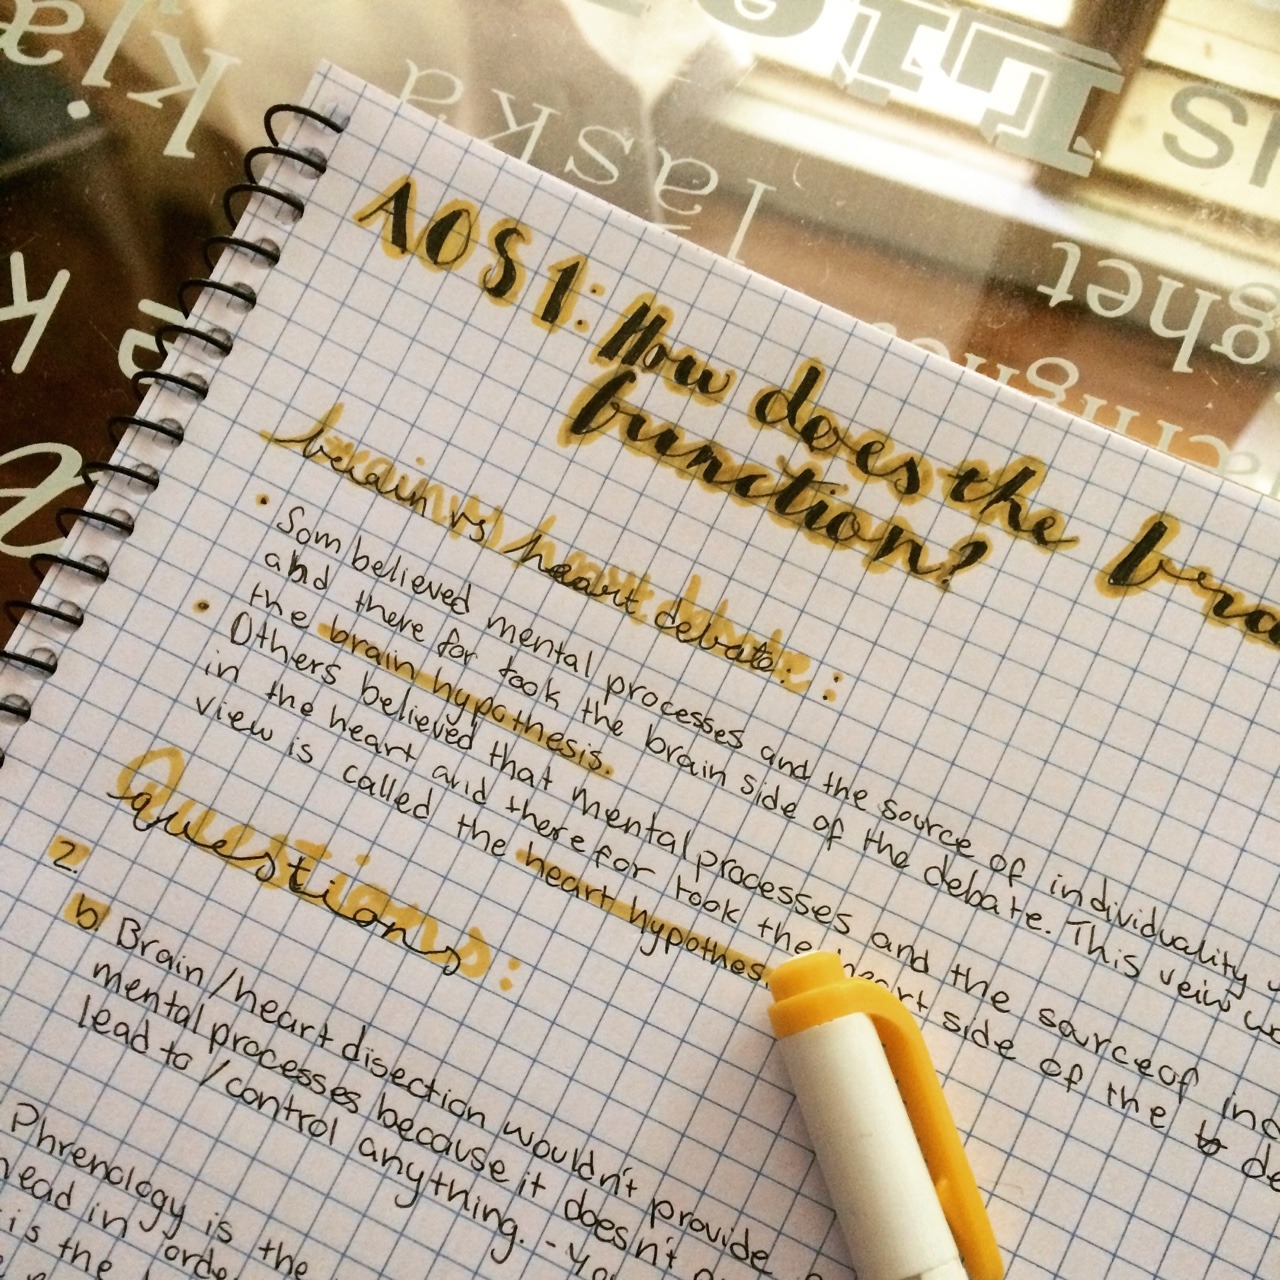 AOS 1: How does the bra
function?
brain vs heart debate:
• Som believed mental processes and the source of individuality
and there for took the brain side of the debate. This veiw
the brain hypothesis.
• Others believed that mental processes and the source of ind
in the heart and there for took the heart side of the b de
view is called the heart hypothes
Questions:
2.
b) Brain/heart disection wouldn't provide
mental processes because it doesn't
lead to/control anything. - you
Phrenology is the
head in orde
is the
kja
Jaska
ghet